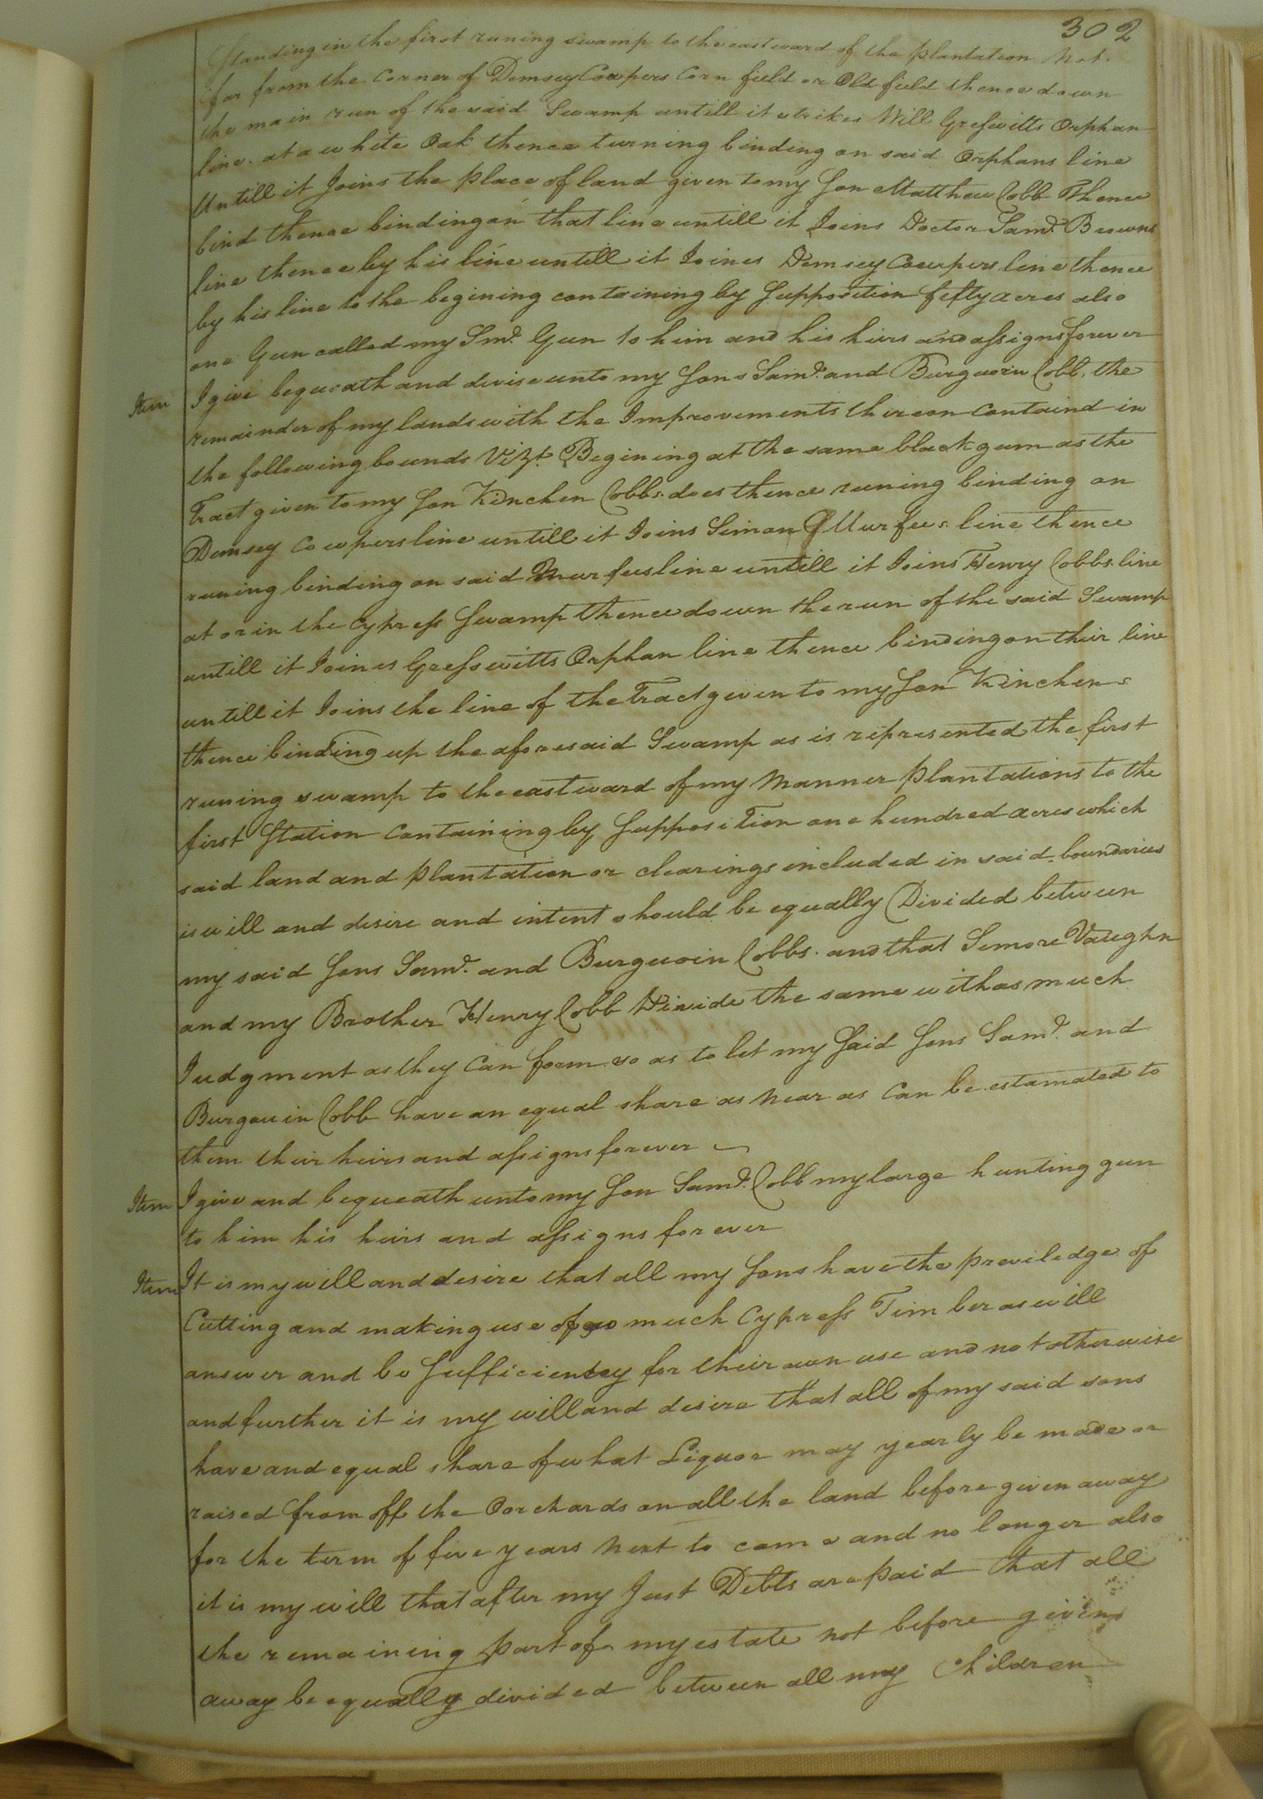 302
Standing in the first runing swamp to the eastward of the plantation Not
far from the corner of Demsey Cowpers Corn field or Old field thence down
the main run of the said Swamp untill it strikes Will Gresswitts Orphan
line at a white Oak thence turning binding on said Orphans line
Untill it Joins the place of land given to my Son Matthew Cobb Thence
bind thence binding on that line untill it Joins Doctor Saml. Browns
line thence by his line untill it Joines Demsey Cowpers line thence
by his line to the begining containing by Supposition fifty acres also
one Gun called my Sml. Gun to him and his hirs and assigns forever
Item I give bequeath and devise unto my Sons Saml. and Burguoin Cobb, the
remainder of my lands with the Improvements thireon Containd in
the following bounds Vizt. Begining at the same black gum as the
Tract given to my Son Kinchen Cobbs does thence runing binding on
Demsey Cowpers line untill it Joins Simon Murfees line thence
runing binding on said Murfees line untill it Joins Henry Cobbs line
at or in the Cypress Swamp thence down the run of the said Swamp
untill it Joines Gresswitts Orphan line thence binding on their line
untill it Joins the line of the Tract given to my Son Kinchens
thence binding up the aforesaid Swamp as is represented the first
runing swamp to the eastward of my Manner plantations to the
first Station Containing by Supposition one hundred acres which
said land and plantation or clearings included in said boundaries
is will and desire and intent should be equally Divided between
my said Sons Saml. and Burguoin Cobbs. and that Simore Vaughn
and my Brother Henry Cobb Divide the same with as much
Judgment as they Can form so as to let my Said Sons Saml. and
Burgouin Cobb have an equal share as near as Can be estamated to
them their heirs and assigns forever
Item I give and bequeath unto my Son Saml. Cobb my large hunting gun
to him his heirs and assigns forever
Item It is my will and desire that all my Sons have the previledge of
Cutting and making use of so much Cypress Timber as will
answer and be Sufficientcy for their own use and not otherwise
and further it is my will and desire that all of my said sons
have and equal share of what Liquor may yearly be made or
raised from off the Oorchards on all the land before given away
for the term of five years Next to come and no longer also
it is my will that after my Just Debts are paid that all
the remaining part of my estate not before given
away be equally divided between all my Children